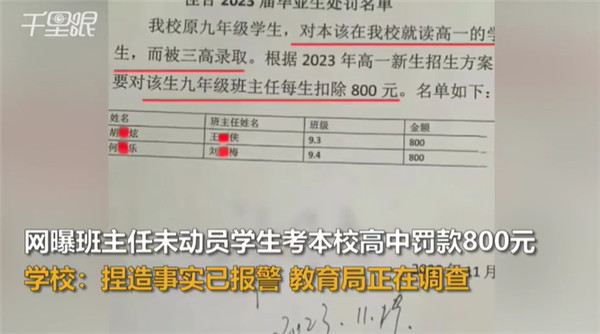 千里眼
2023 届毕业生处罚名单
我校原九年级学生，对本该在我校就读高一的学
生，而被三高录取。根据 2023 年高一新生招生方案
要对该生九年级班主任每生扣除 800 元。名单如下：
姓名 班主任姓名 班级 金额
胡 炫 王 侠 9.3 800
何 乐 刘 梅 9.4 800
网曝班主任未动员学生考本校高中罚款800元
11 月
学校：捏造事实已报警 教育局正在调查
2023.11.